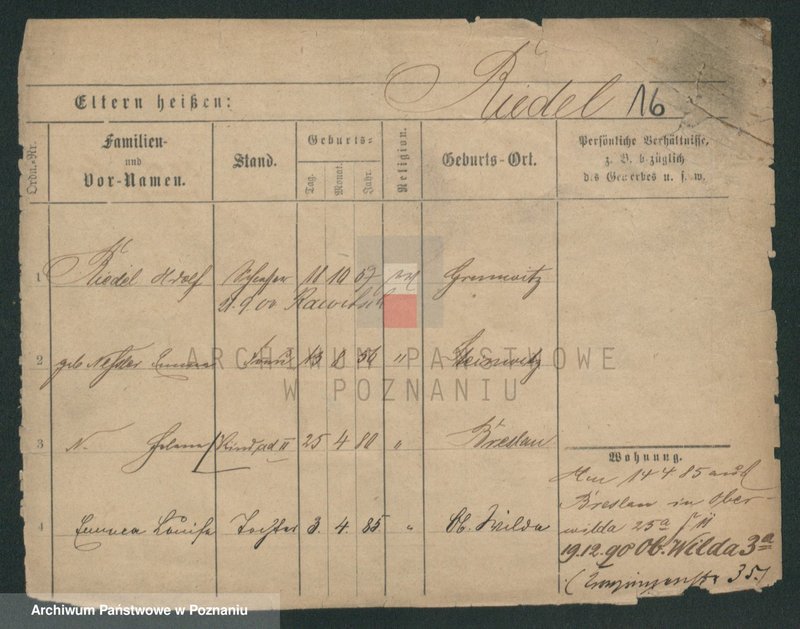 Riedel 16
Eltern heißen:
Ordn.-Nr.
Familien-
und
Vor-Namen.
Stand.
Geburts-
Tag.
Monat.
Jahr.
Religion.
Geburts-Ort.
Persönliche Verhältnisse,
z. B. bezüglich
des Gewerbes u. s. w.
1 Riedel Adolf 10
Rawitsch
2 geb. Emma Frau 13 8 56 "
3 N. Helene Kind ad II 25 4 80 " Breslau
4 Emma Louise Tochter 3. 4. 85 " Ob. Wilda
Wohnung.
Am 14 4 85 aus
Breslau in Ober-
wilda 25a
19.12.90 Ob. Wilda 3a
35.)
ARCHIWUM PAŃSTWOWE
W POZNANIU
Archiwum Państwowe w Poznaniu